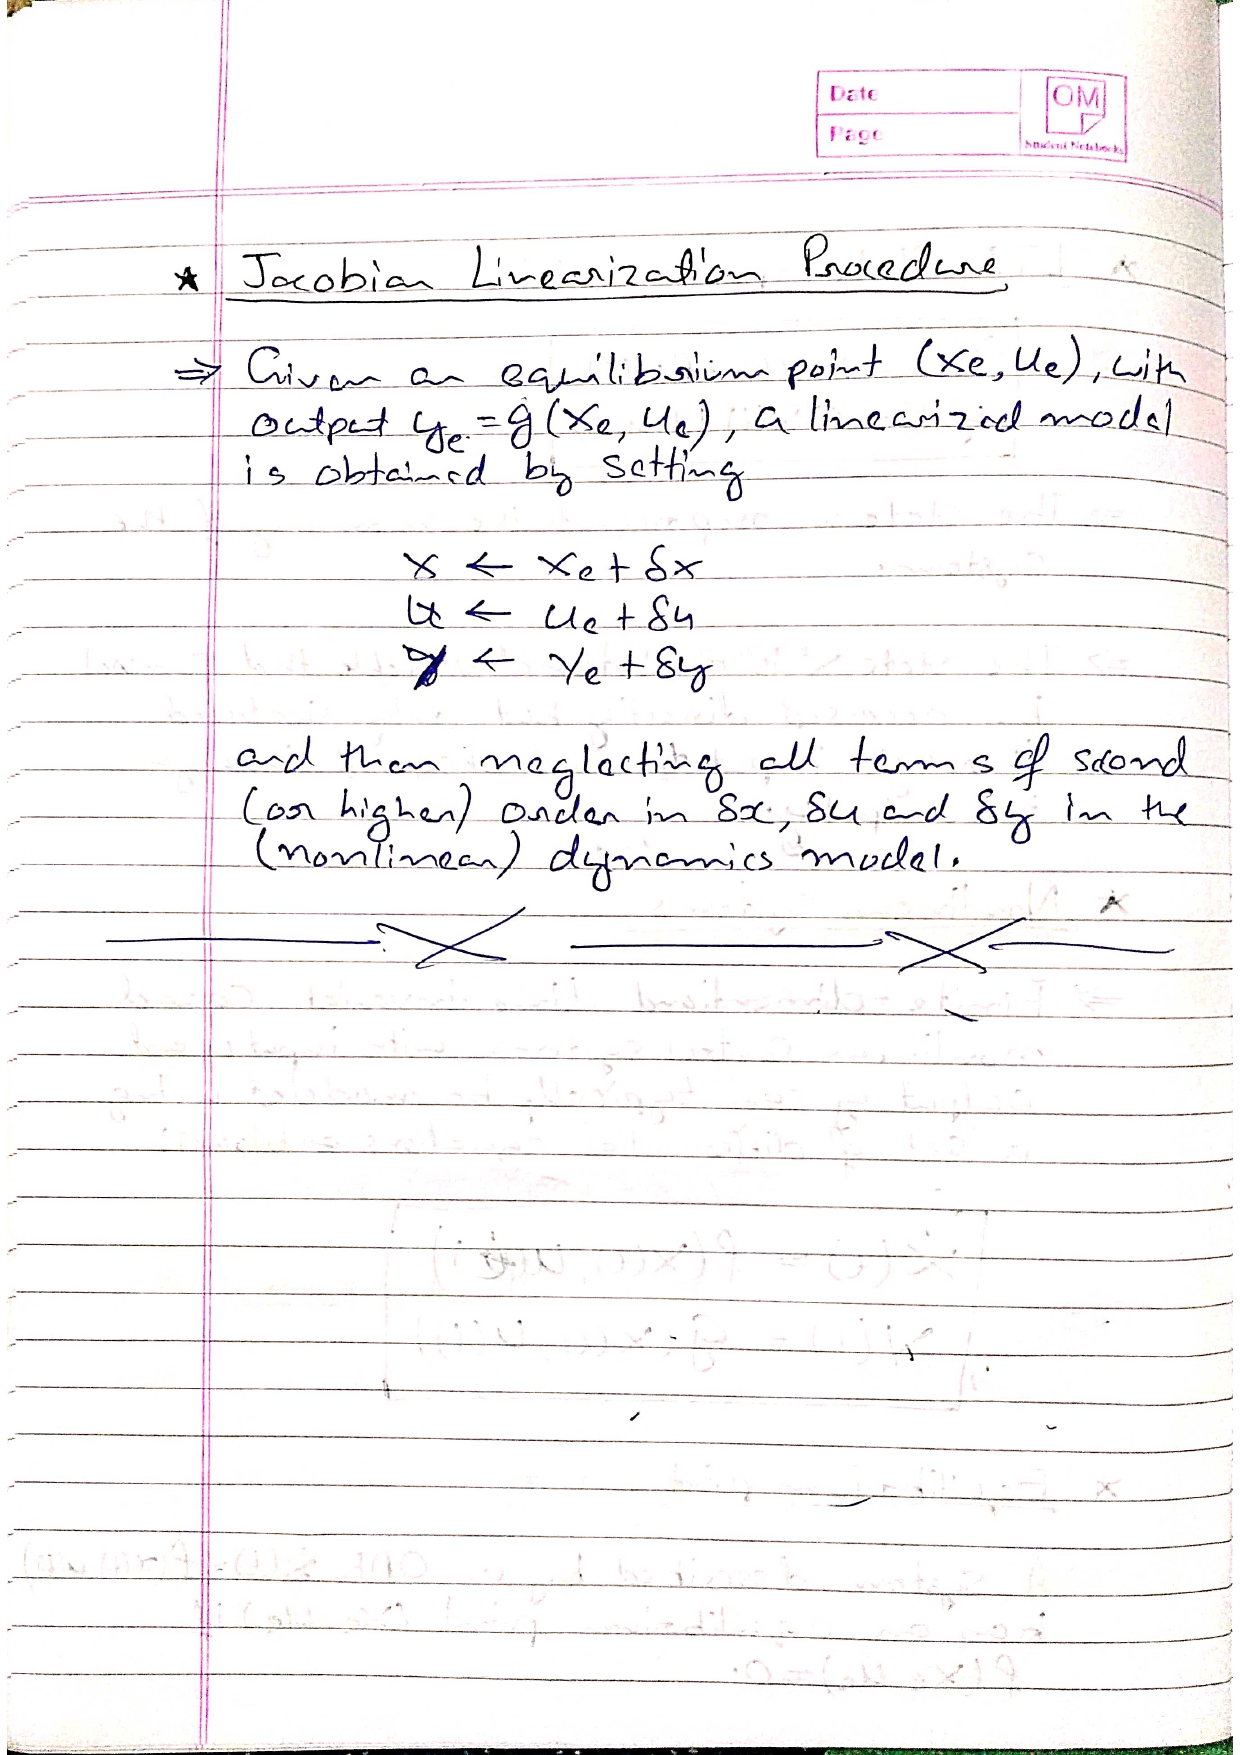 Date
Page
OM
Student Notebooks
★ Jacobian Linearization Procedure
⇒ Given an equilibrium point (xe, ue), with
output ye = g(xe, ue), a linearized model
is obtained by setting
x ← xe + δx
u ← ue + δu
y ← ye + δy
and then neglecting all terms of second
(or higher) order in δx, δu and δy in the
(nonlinear) dynamics model.